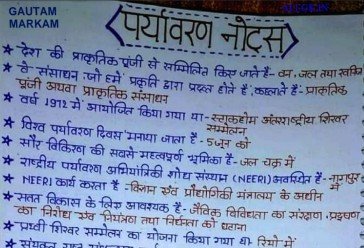 GAUTAM
MARKAM
पर्यावरण नोट्स
★ देश की प्राकृतिक पूंजी से सम्मिलित किए जाते हैं- वन, जल तथा खनिज
★ वे संसाधन जो हमें प्रकृति द्वारा प्रदत्त होते हैं, कहलाते हैं- प्राकृतिक
पूंजी अथवा प्राकृतिक संसाधन
★ वर्ष 1972 में आयोजित किया गया था- स्टॉकहोम अंतरराष्ट्रीय शिखर
सम्मेलन
★ विश्व पर्यावरण दिवस मनाया जाता है- 5 जून को
★ सौर विकिरण की सबसे महत्वपूर्ण भूमिका है- जल चक्र में
★ राष्ट्रीय पर्यावरण अभियांत्रिकी शोध संस्थान (NEERI) अवस्थित है- नागपुर में
★ NEERI कार्य करता है- विज्ञान एवं प्रौद्योगिकी मंत्रालय के अधीन
★ सतत विकास के लिए आवश्यक है- जैविक विविधता का संरक्षण, प्रदूषण
का निरोध एवं नियंत्रण तथा निर्धनता को घटाना
★ पृथ्वी शिखर सम्मेलन का योजना किया गया था- रियो में